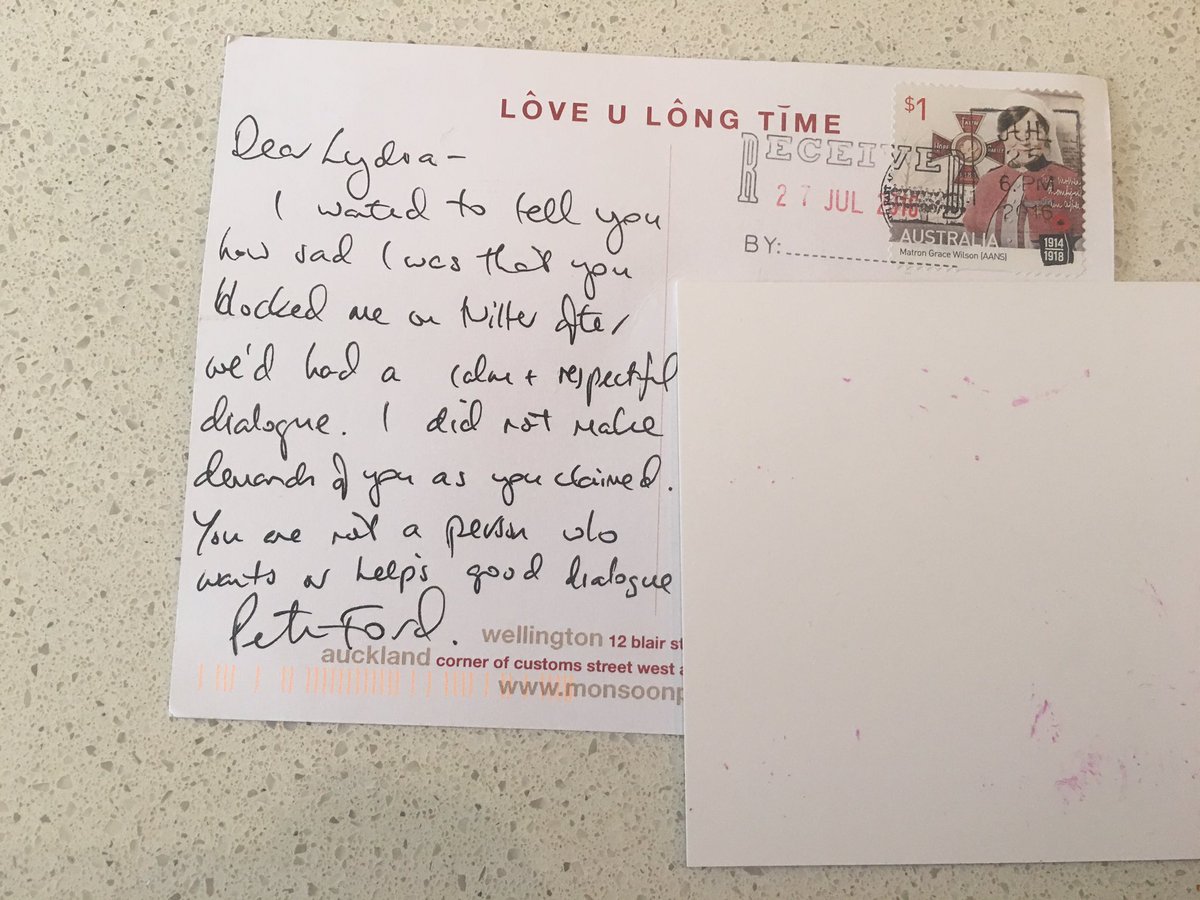 LÔVE U LÔNG TĪME
$1
RECEIVED
27 JUL 2016
BY:
JUL
25
6 PM
2016
AUSTRALIA
Matron Grace Wilson (AANS)
1914
1918
Dear Lydia –
I wanted to tell you
how sad I was that you
blocked me on Twitter after
we'd had a calm + respectful
dialogue. I did not make
demands of you as you claimed.
You are not a person who
wants or helps good dialogue
Peter Ford.
wellington 12 blair st
auckland corner of customs street west a
www.monsoonp